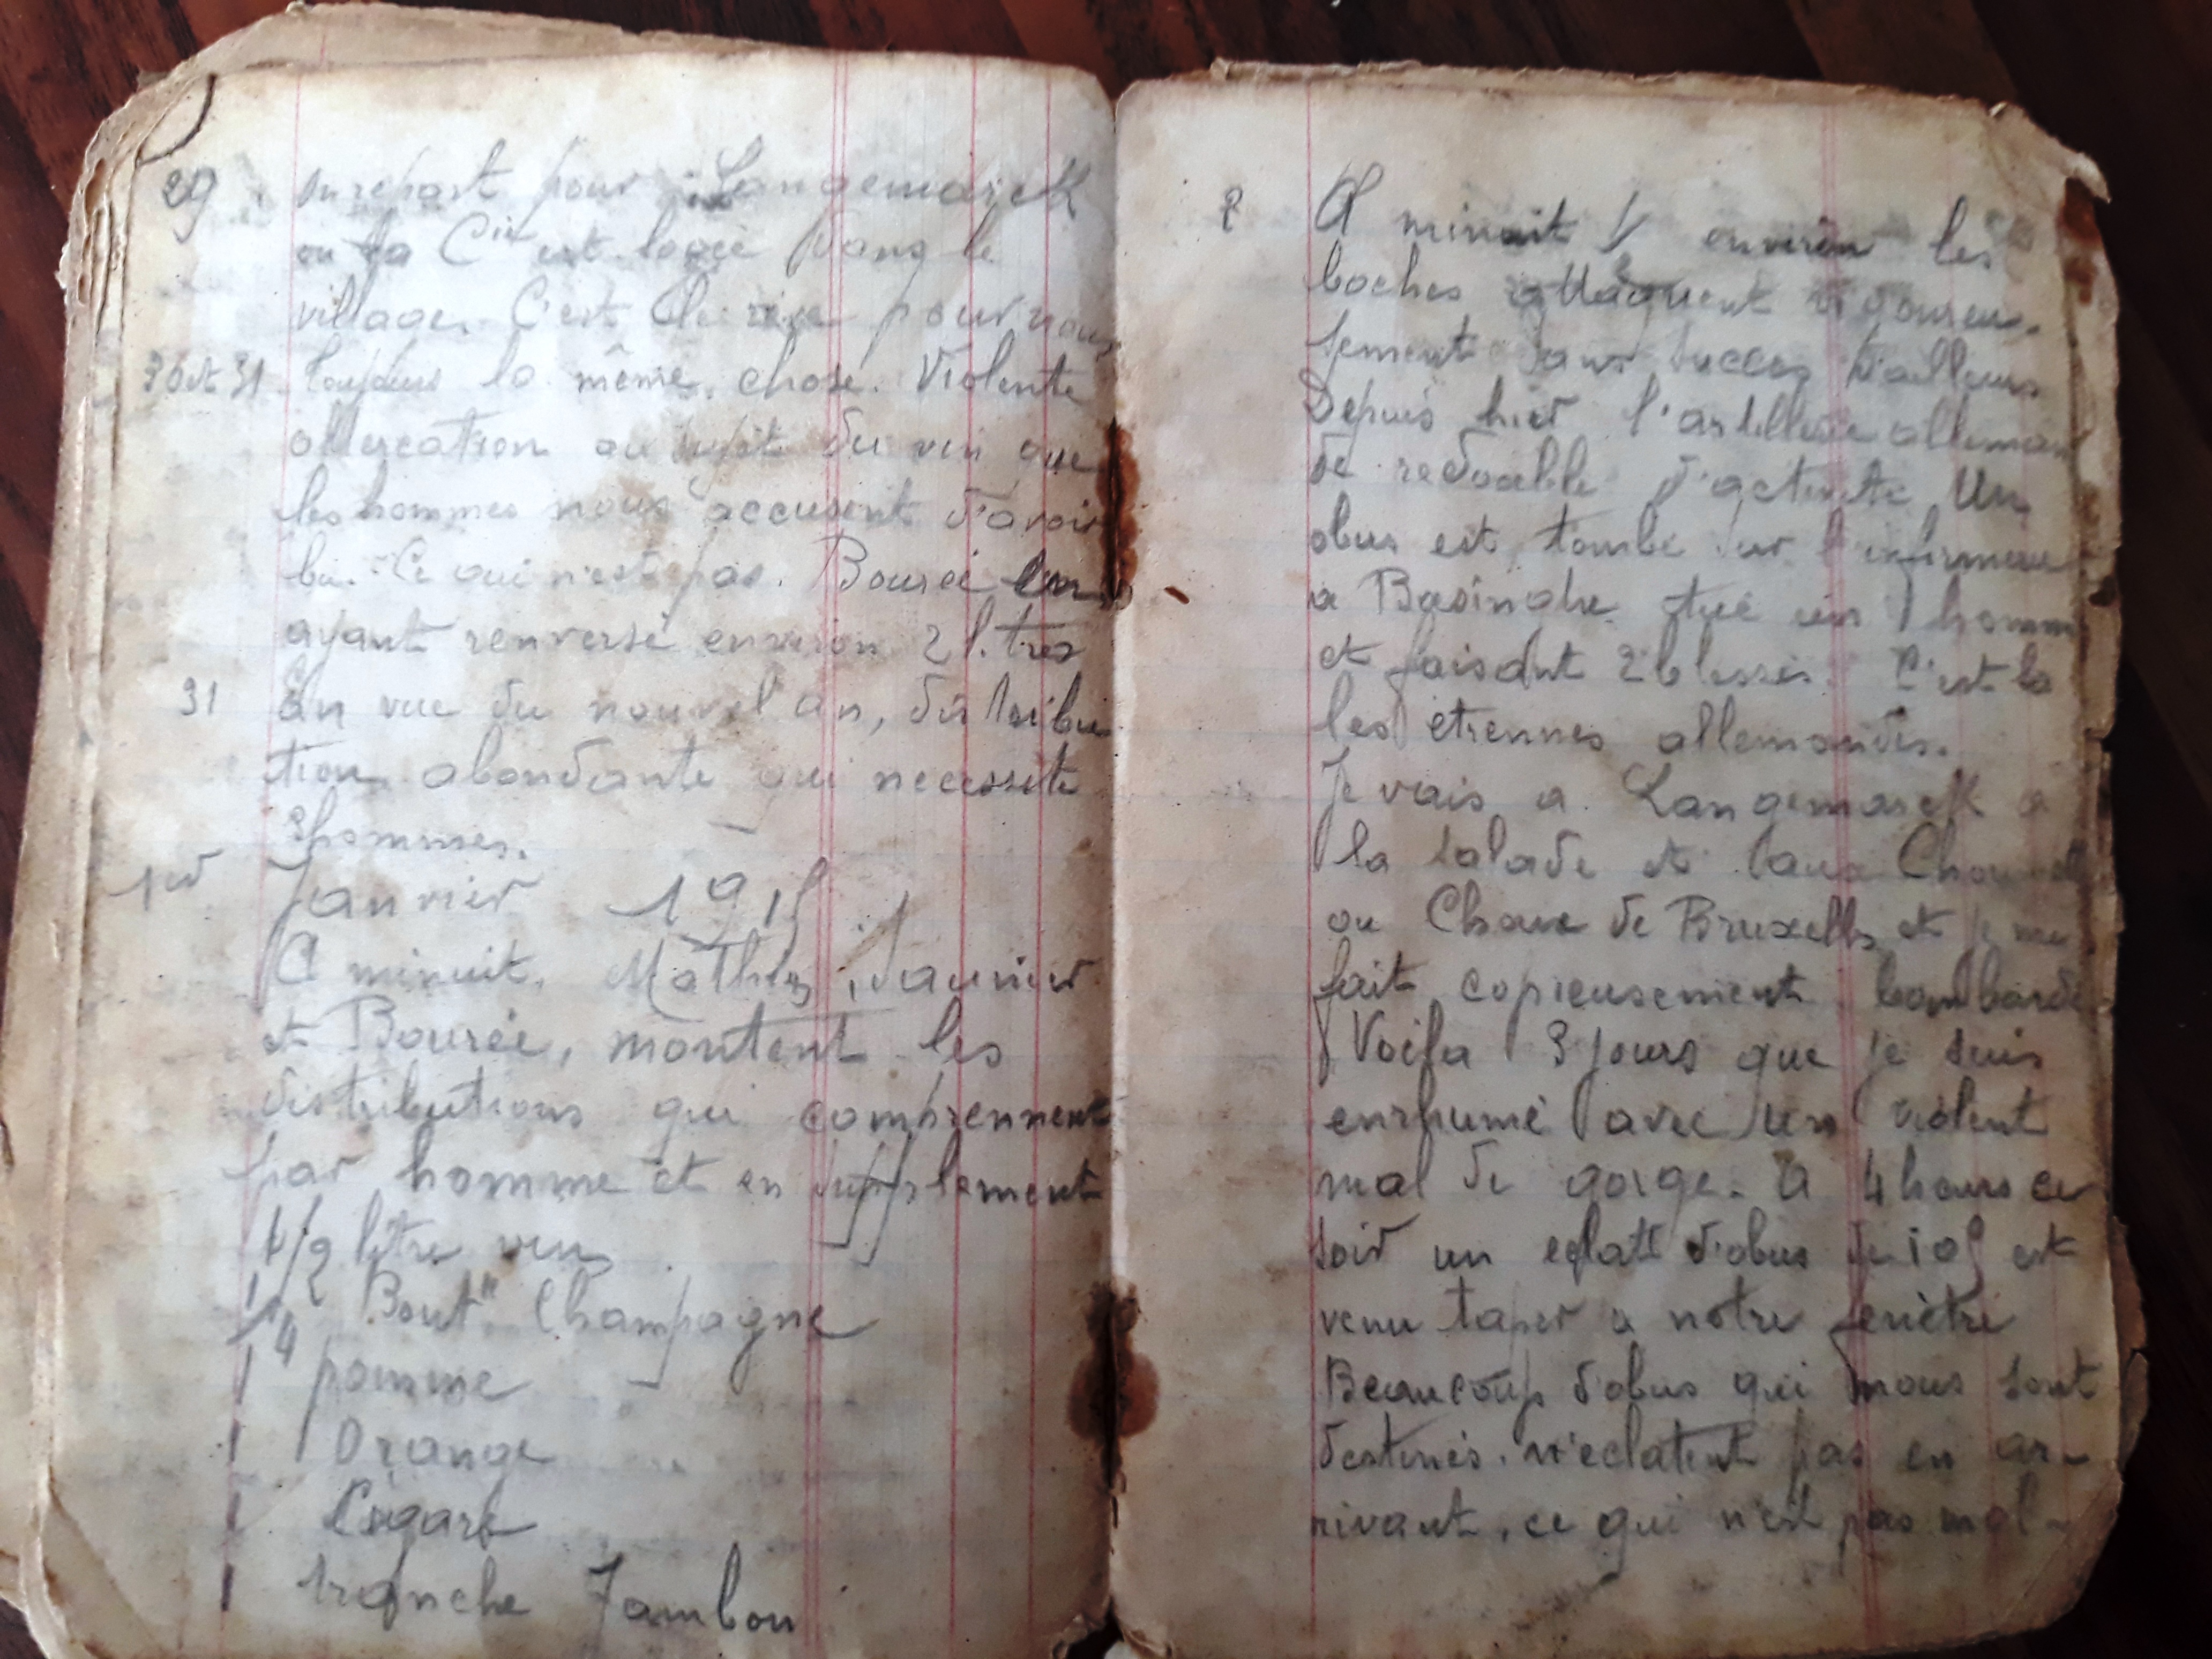 29. on repart pour Langemarck
ou la Cie est logée dans le
village. C'est le pour nous
30 et 31. Toujours la même chose. Violente
altercation au sujet du vin que
les hommes nous accusent d'avoir
bu. Ce qui n'est pas. Bourée en
ayant renversé environ 2 litres
31 En vue du nouvel an, distribu
tion abondante qui necessite
hommes.
1er Janvier 1915
A minuit, Mathis, Saunier
et Bourée, montent les
distributions qui comprennent
par homme et en supplement
1/2 litre vin
1/4 Bout" Champagne
1 pomme
1 Orange
1 Cigare
1 tranche Jambon
2 A minuit environ les
boches attaquent vigoureu-
sement sans succes d'ailleurs
Depuis hier l'artillerie alleman
de redouble d'activité Un
obus est tombé sur l'infirmerie
a Basinghe tué un homme
et faisant 2 blessés. C'est la
les etrennes allemandes.
Je vais a Langemarck a
la salade et aux Choux
ou Choux de Bruxelles et je me
fait copieusement bombardé
Voila 3 jours que je suis
enrhumé avec un violent
mal de gorge. A 4 heures ce
soir un eclatt d'obus de 105 est
venu taper a notre fenètre
Beaucoup d'obus qui nous sont
destinés. n'eclatent pas en ar-
rivant, ce qui n'est pas mal-